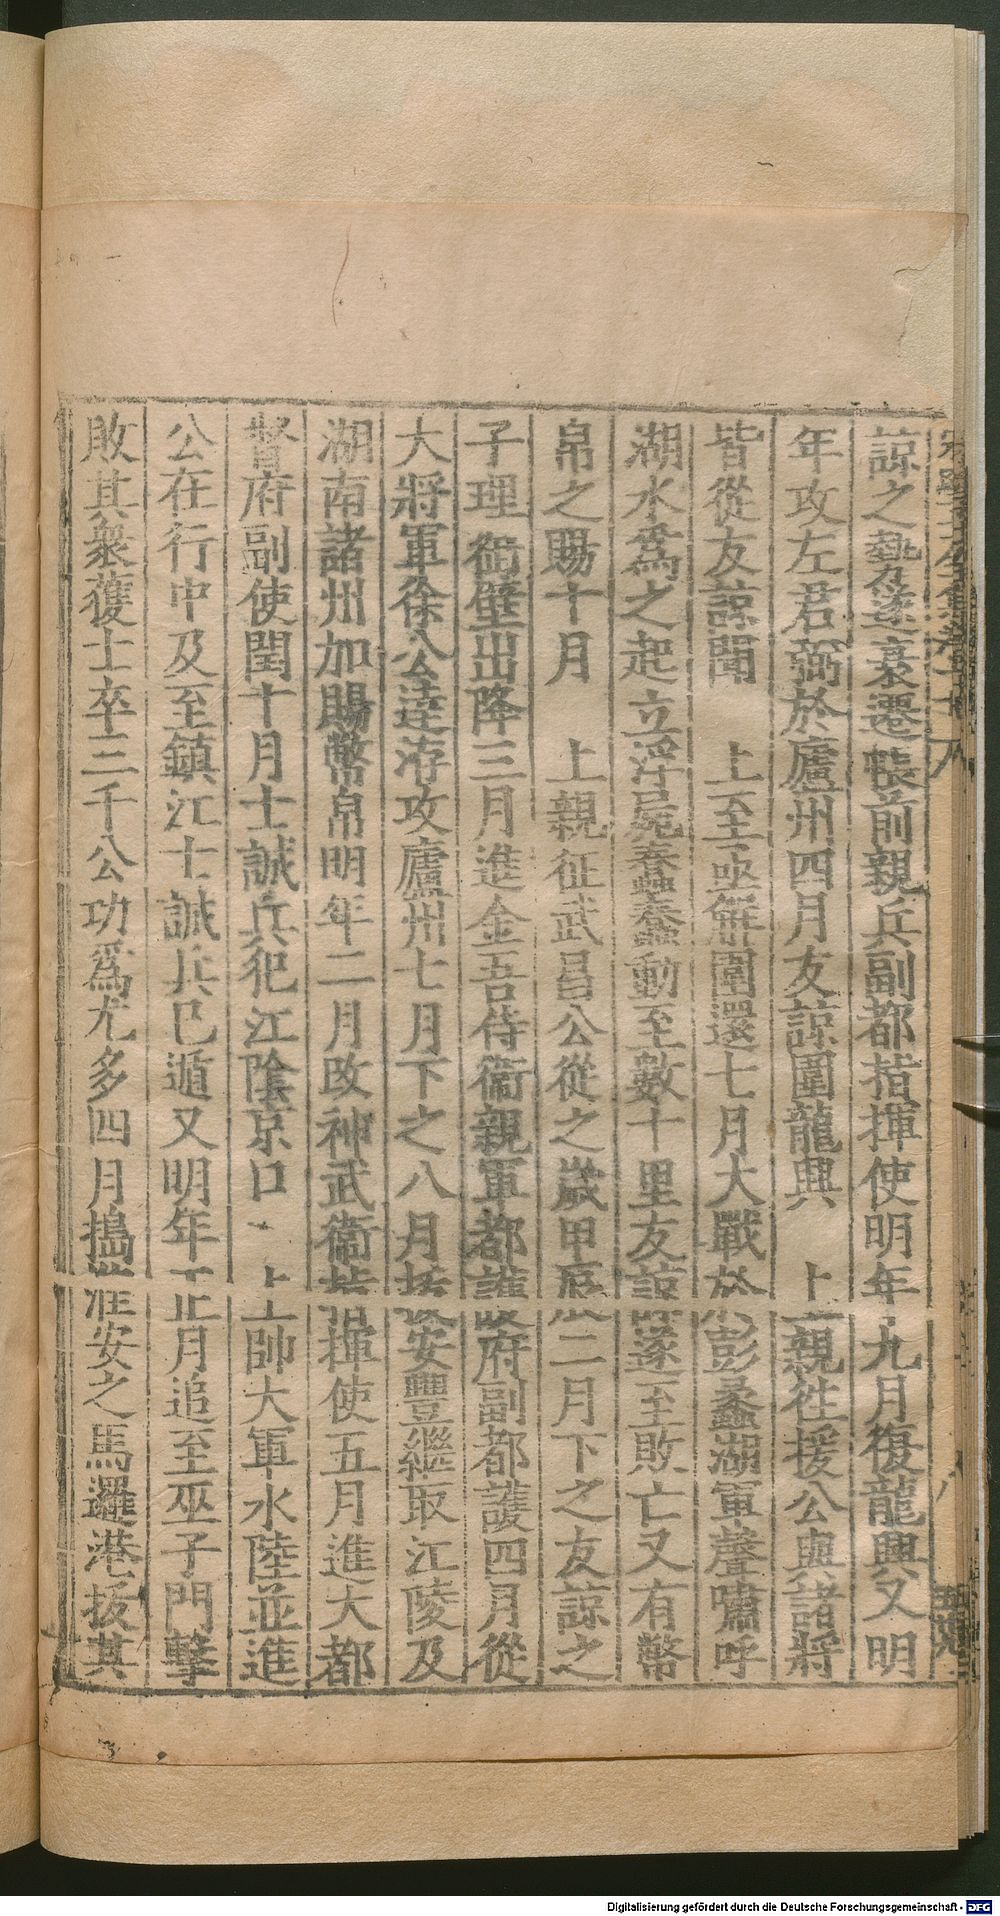 諒之勢遂衰遷帳前親兵副都指揮使明年九月復龍興又明
年攻左君弼於廬州四月友諒圍龍興　上親往援公與諸將
皆從友諒聞　上至亟解圍還七月大戰於彭蠡湖軍聲嘯呼
湖水爲之起立浮屍蠢蠢動至數十里友諒遂至敗亡又有幣
帛之賜十月　上親征武昌公從之歲甲辰二月下之友諒之
子理銜璧出降三月進金吾侍衞親軍都護府副都護四月從
大將軍徐公達洊攻廬州七月下之八月援安豐繼取江陵及
湖南諸州加賜幣帛明年二月改神武衞指揮使五月進大都
督府副使閏十月士誠兵犯江陰京口　上帥大軍水陸並進
公在行中及至鎮江士誠兵已遁又明年正月追至巫子門擊
敗其衆獲士卒三千公功爲尤多四月擣淮安之馬邏港拔其
Digitalisierung gefördert durch die Deutsche Forschungsgemeinschaft - DFG